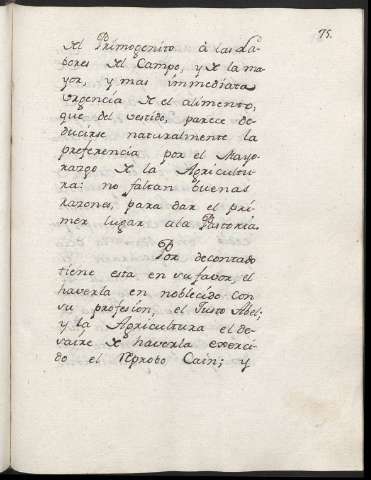 75.
del Primogenito à las La-
bores del Campo, y de la ma-
yor, y mas immediata
urgencia de el alimento,
que del vestido, parece de-
ducirse naturalmente la
preferencia por el Mayo-
razgo de la Agricultu-
ra: no faltan buenas
razones, para dar el pri-
mer lugar a la Pastoria.
Por decontado
tiene esta en su favor, el
haverla en noblecido con
su profesion, el Justo Abel;
y la Agricultura el de-
saire de haverla exerci-
do el Reprobo Cain; y